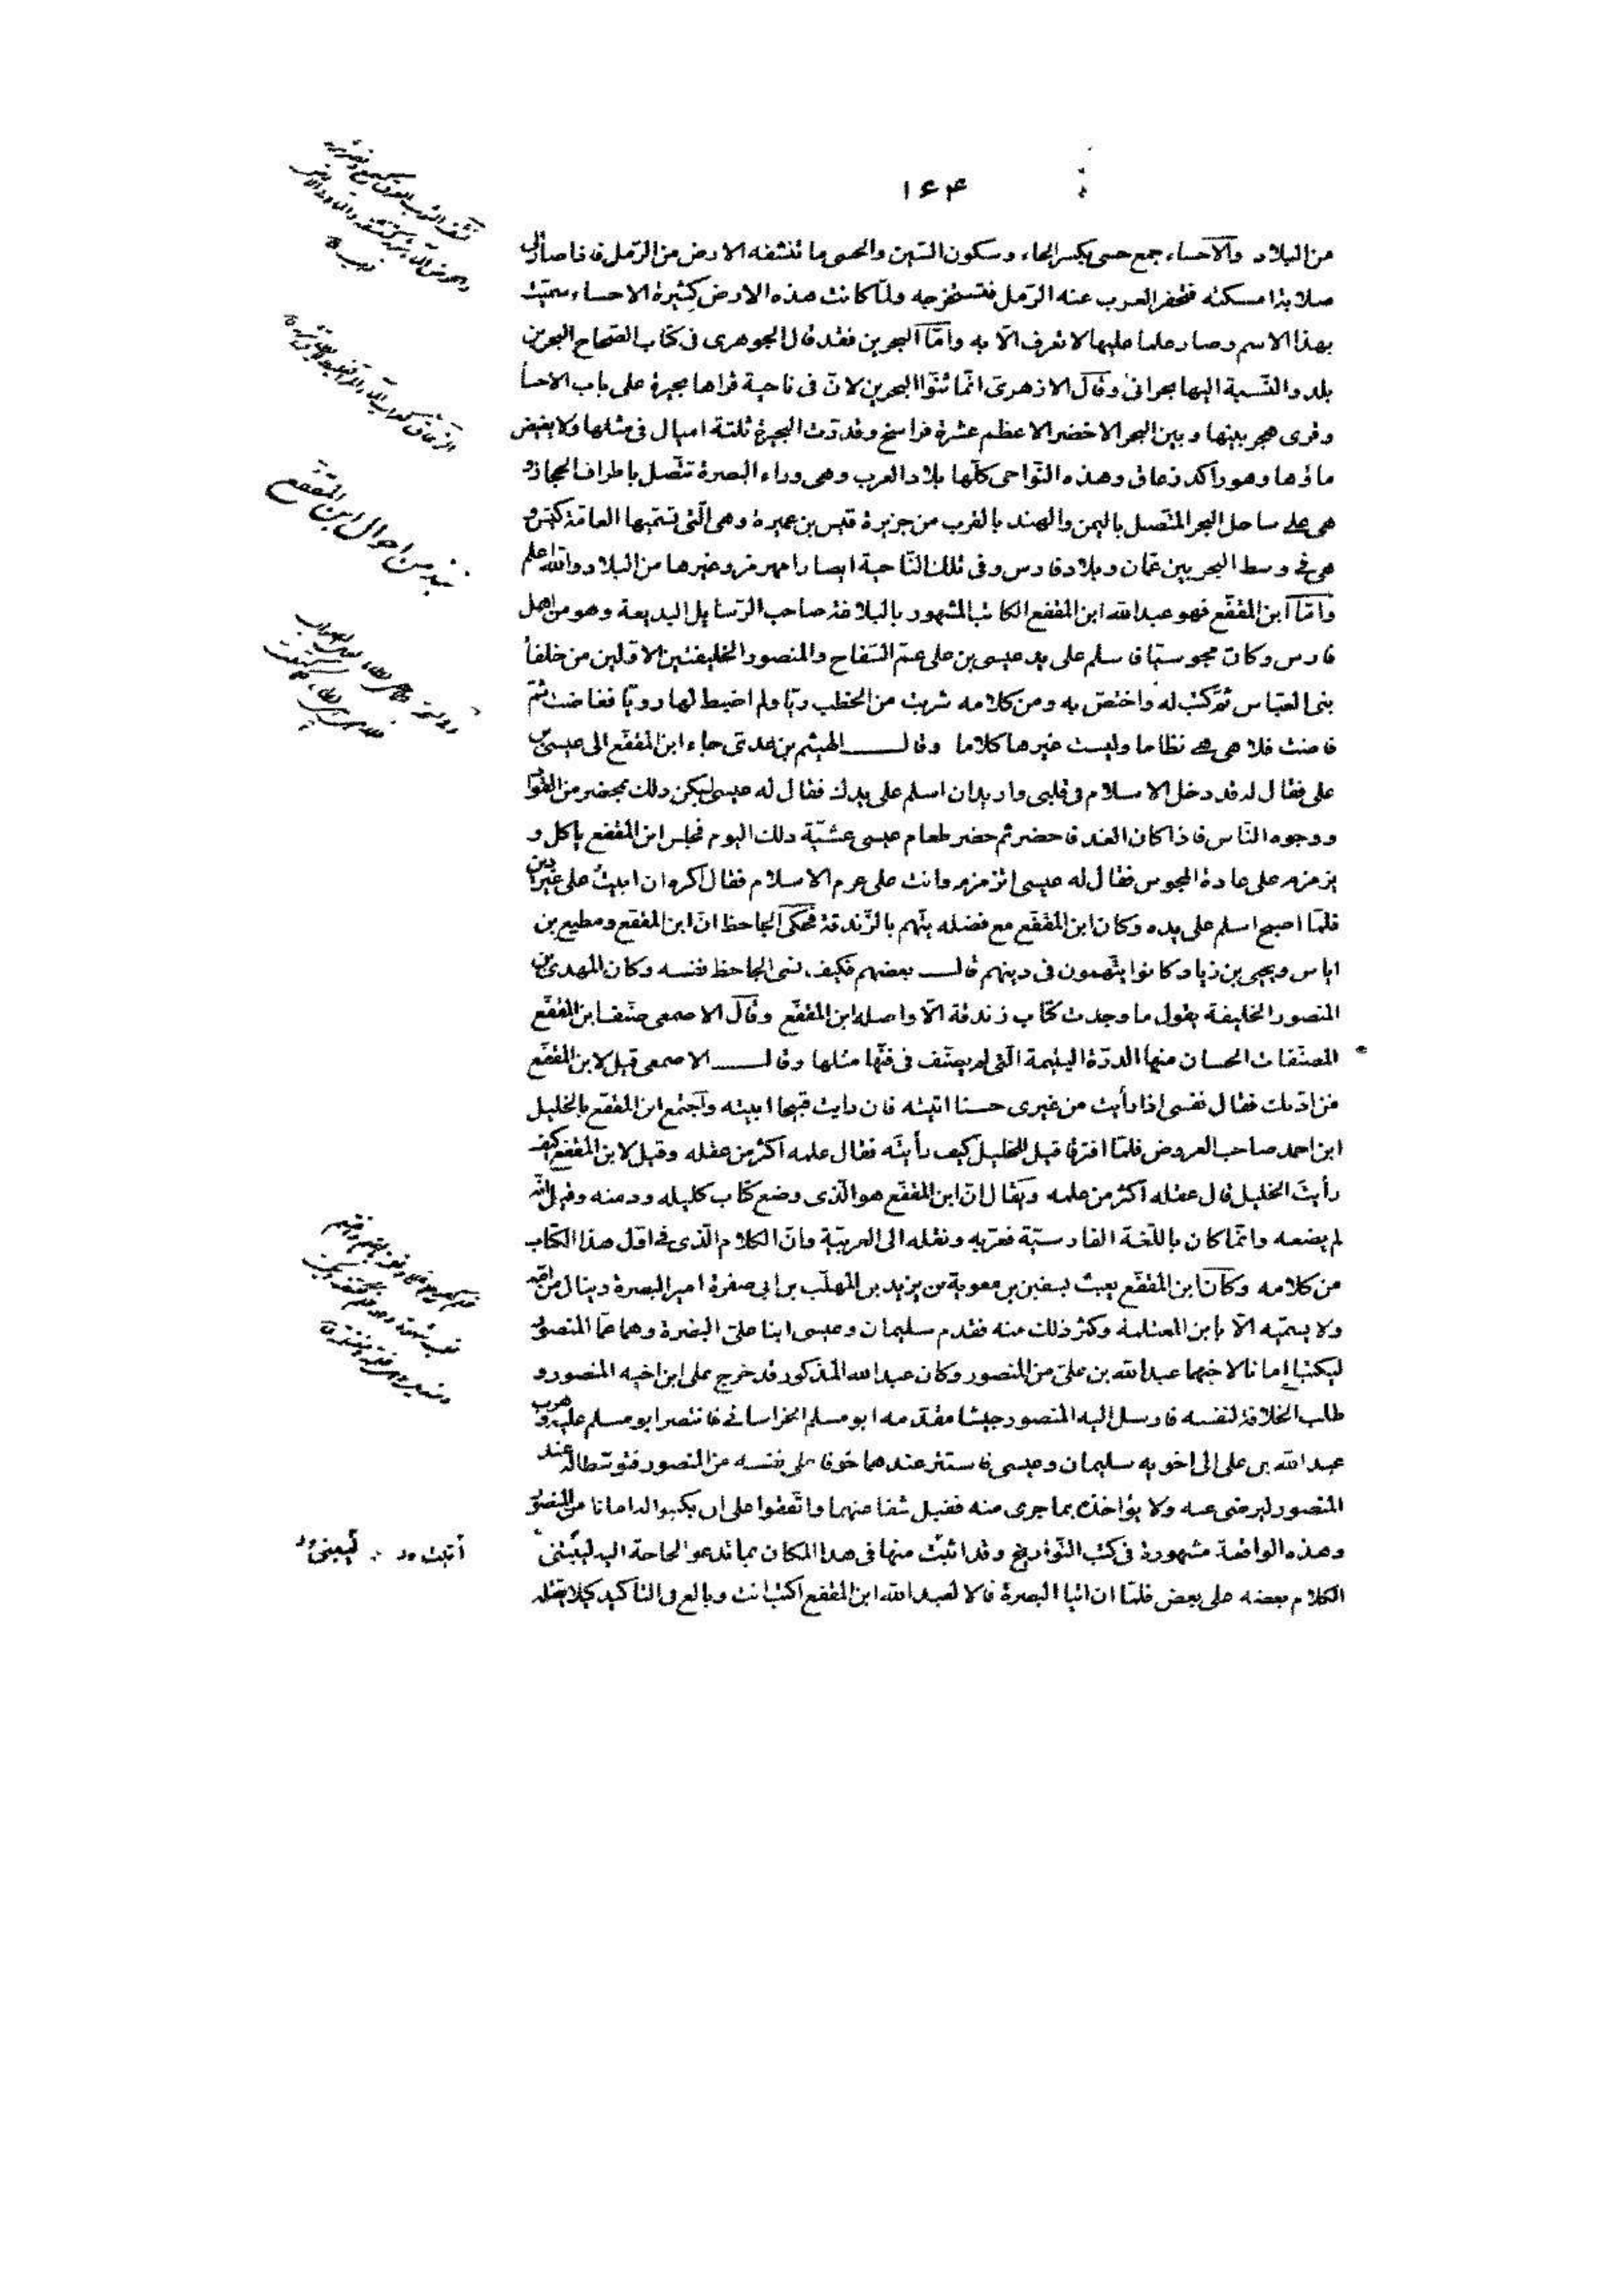 ١٦٤
من البلاد والاحساء جمع حسى بكسر الحاء وسكون السّين والحسى ما تنشفه الارض من الرّمل فاذا صار الى
صلابة امسكته فتحفر العرب عنه الرّمل فتستخرجه ولمّا كانت هذه الارض كثيرة الاحساء سمّيت
بهذا الاسم وصار علما عليها لا تعرف الّا به وامّا البحرين فقد قال الجوهرى فى كتاب الصّحاح البحرين
بلد والنّسبة اليها بحرانى وقال الازهرىّ انّما ثنّوا البحرين لانّ فى ناحية قراها بحيرة على باب الاحسا
وقرى هجر بينها وبين البحر الاخضر الاعظم عشرة فراسخ وقدّرت البحيرة ثلثة اميال فى مثلها ولا يغيض
ماؤها وهو راكد زعاق وهذه النّواحى كلّها بلاد العرب وهى وراء البصرة تتّصل باطراف الحجاز و
هى على ساحل البحر المتّصل باليمن والهند بالقرب من جزيرة قيس بن عميرة وهى الّتى تسمّيها العامّة كيش و
هى فى وسط البحر بين عمّان وبلاد فارس وفى تلك النّاحية ايضا رامهرمز وغيرها من البلاد والله اعلم
وامّا ابن المقفّع فهو عبد الله ابن المقفع الكاتب المشهور بالبلاغة صاحب الرّسايل البديعة وهو من اهل
فارس وكان مجوسيّا فاسلم على يد عيسى بن على عمّ السّفاح والمنصور الخليفتين الاوّلين من خلفأ
بنى العبّاس ثمّ كتب له واختصّ به ومن كلامه شربت من الخطب ريّا ولم اضبط لها رويّا فغاضت ثمّ
فاضت فلا هى هى نظاما وليست غيرها كلاما وقال الهيثم بن عدىّ جاء ابن المقفّع الى عيسى بن
على فقال له قد دخل الاسلام فى قلبى واريد ان اسلم على يدك فقال له عيسى ليكن ذلك بمحضر من القوّا
ووجوه النّاس فاذا كان الغد فاحضر ثم حضر طعام عيسى عشيّة ذلك اليوم فجلس ابن المقفع ياكل و
يزمزم على عادة المجوس فقال له عيسى اتزمزم وانت على عزم الاسلام فقال اكره ان ابيت على غير دين
فلمّا اصبح اسلم على يده وكان ابن المقفّع مع فضله يتّهم بالزّندقة فحكى الجاحظ انّ ابن المقفّع ومطيع بن
اياس ويحيى بن زياد كانوا يتّهمون فى دينهم قال بعضهم فكيف نسى الجاحظ نفسه وكان المهدى بن
المنصور الخليفة يقول ما وجدت كتاب زندقة الّا واصله ابن المقفّع وقال الاصمعى صنّف ابن المقفّع
المصنّفات الحسان منها الدرّة اليتيمة الّتى لم يصنّف فى فنّها مثلها وقال الاصمعى قيل لابن المقفّع
من ادّبك فقال نفسى اذا رأيت من غيرى حسنا اتيته فان رايت قبيحا ابيته واجتمع ابن المقفّع بالخليل
ابن احمد صاحب العروض فلمّا افترقا قيل للخليل كيف رأيته فقال علمه اكثر من عقله وقيل لابن المقفع كيف
رأيت الخليل قال عقله اكثر من علمه ويقال انّ ابن المقفّع هو الّذى وضع كتاب كليله ودمنه وقيل انّه
لم يضعه وانّما كان باللّغة الفارسيّة فعرّبه ونقله الى العربيّة وانّ الكلام الّذى فى اوّل هذا الكتاب
من كلامه وكان ابن المقفّع يعبث بسفين بن معوية بن يزيد بن المهلّب بن ابى صفرة امير البصرة وينال من امّه
ولا يسمّيه الّا بابن المغتلمة وكثر ذلك منه فقدم سليمان وعيسى ابنا علىّ البصرة وهما عمّا المنصور
ليكتبا امانا لاخيهما عبد الله بن علىّ من المنصور وكان عبد الله المذكور قد خرج على ابن اخيه المنصور و
طلب الخلافة لنفسه فارسل اليه المنصور جيشا مقدّمه ابو مسلم الخراسانى فانتصر ابو مسلم عليه وهرب
عبد الله بن على الى اخويه سليمان وعيسى فاستتر عندهما خوفا على نفسه من المنصور فتوسّطا له عند
المنصور ليرضى عنه ولا يؤاخذه بما جرى منه فقبل شفاعتهما واتّفقوا على ان يكتبوا له امانا من المنصور
وهذه الواقعة مشهورة فى كتب التّواريخ وقد اثبتّ منها فى هذا المكان بما تدعو الحاجة اليه ليبتنى
الكلام بعضه على بعض فلمّا ان اتيا البصرة قالا لعبد الله ابن المقفع اكتب انت وبالغ فى التاكيد كيلا يقتله
نبذ من احوال ابن المقفّع